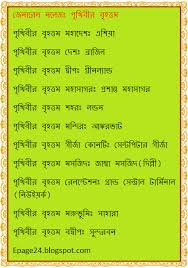 জেনারেল নলেজঃ পৃথিবীর বৃহত্তম
পৃথিবীর বৃহত্তম মহাদেশঃ এশিয়া
পৃথিবীর বৃহত্তম দেশঃ ব্রাজিল
পৃথিবীর বৃহত্তম দ্বীপঃ গ্রীনল্যান্ড
পৃথিবীর বৃহত্তম মহাসাগরঃ প্রশান্ত মহাসাগর
পৃথিবীর বৃহত্তম শহরঃ লন্ডন
পৃথিবীর বৃহত্তম মন্দিরঃ আঙ্করভাট
পৃথিবীর বৃহত্তম গীর্জা কোনটিঃ সেন্টপিটার গীর্জা
পৃথিবীর বৃহত্তম মসজিদঃ জাম্মা মসজিদ(দিল্লী)
পৃথিবীর বৃহত্তম রেলস্টেশনঃ গ্রান্ড সেন্ট্রাল টার্মিনাল
(নিউইয়র্ক)
পৃথিবীর বৃহত্তম মরুভূমিঃ সাহারা
পৃথিবীর বৃহত্তম বদ্বীপঃ সুন্দরবন
Epage24.blogspot.com